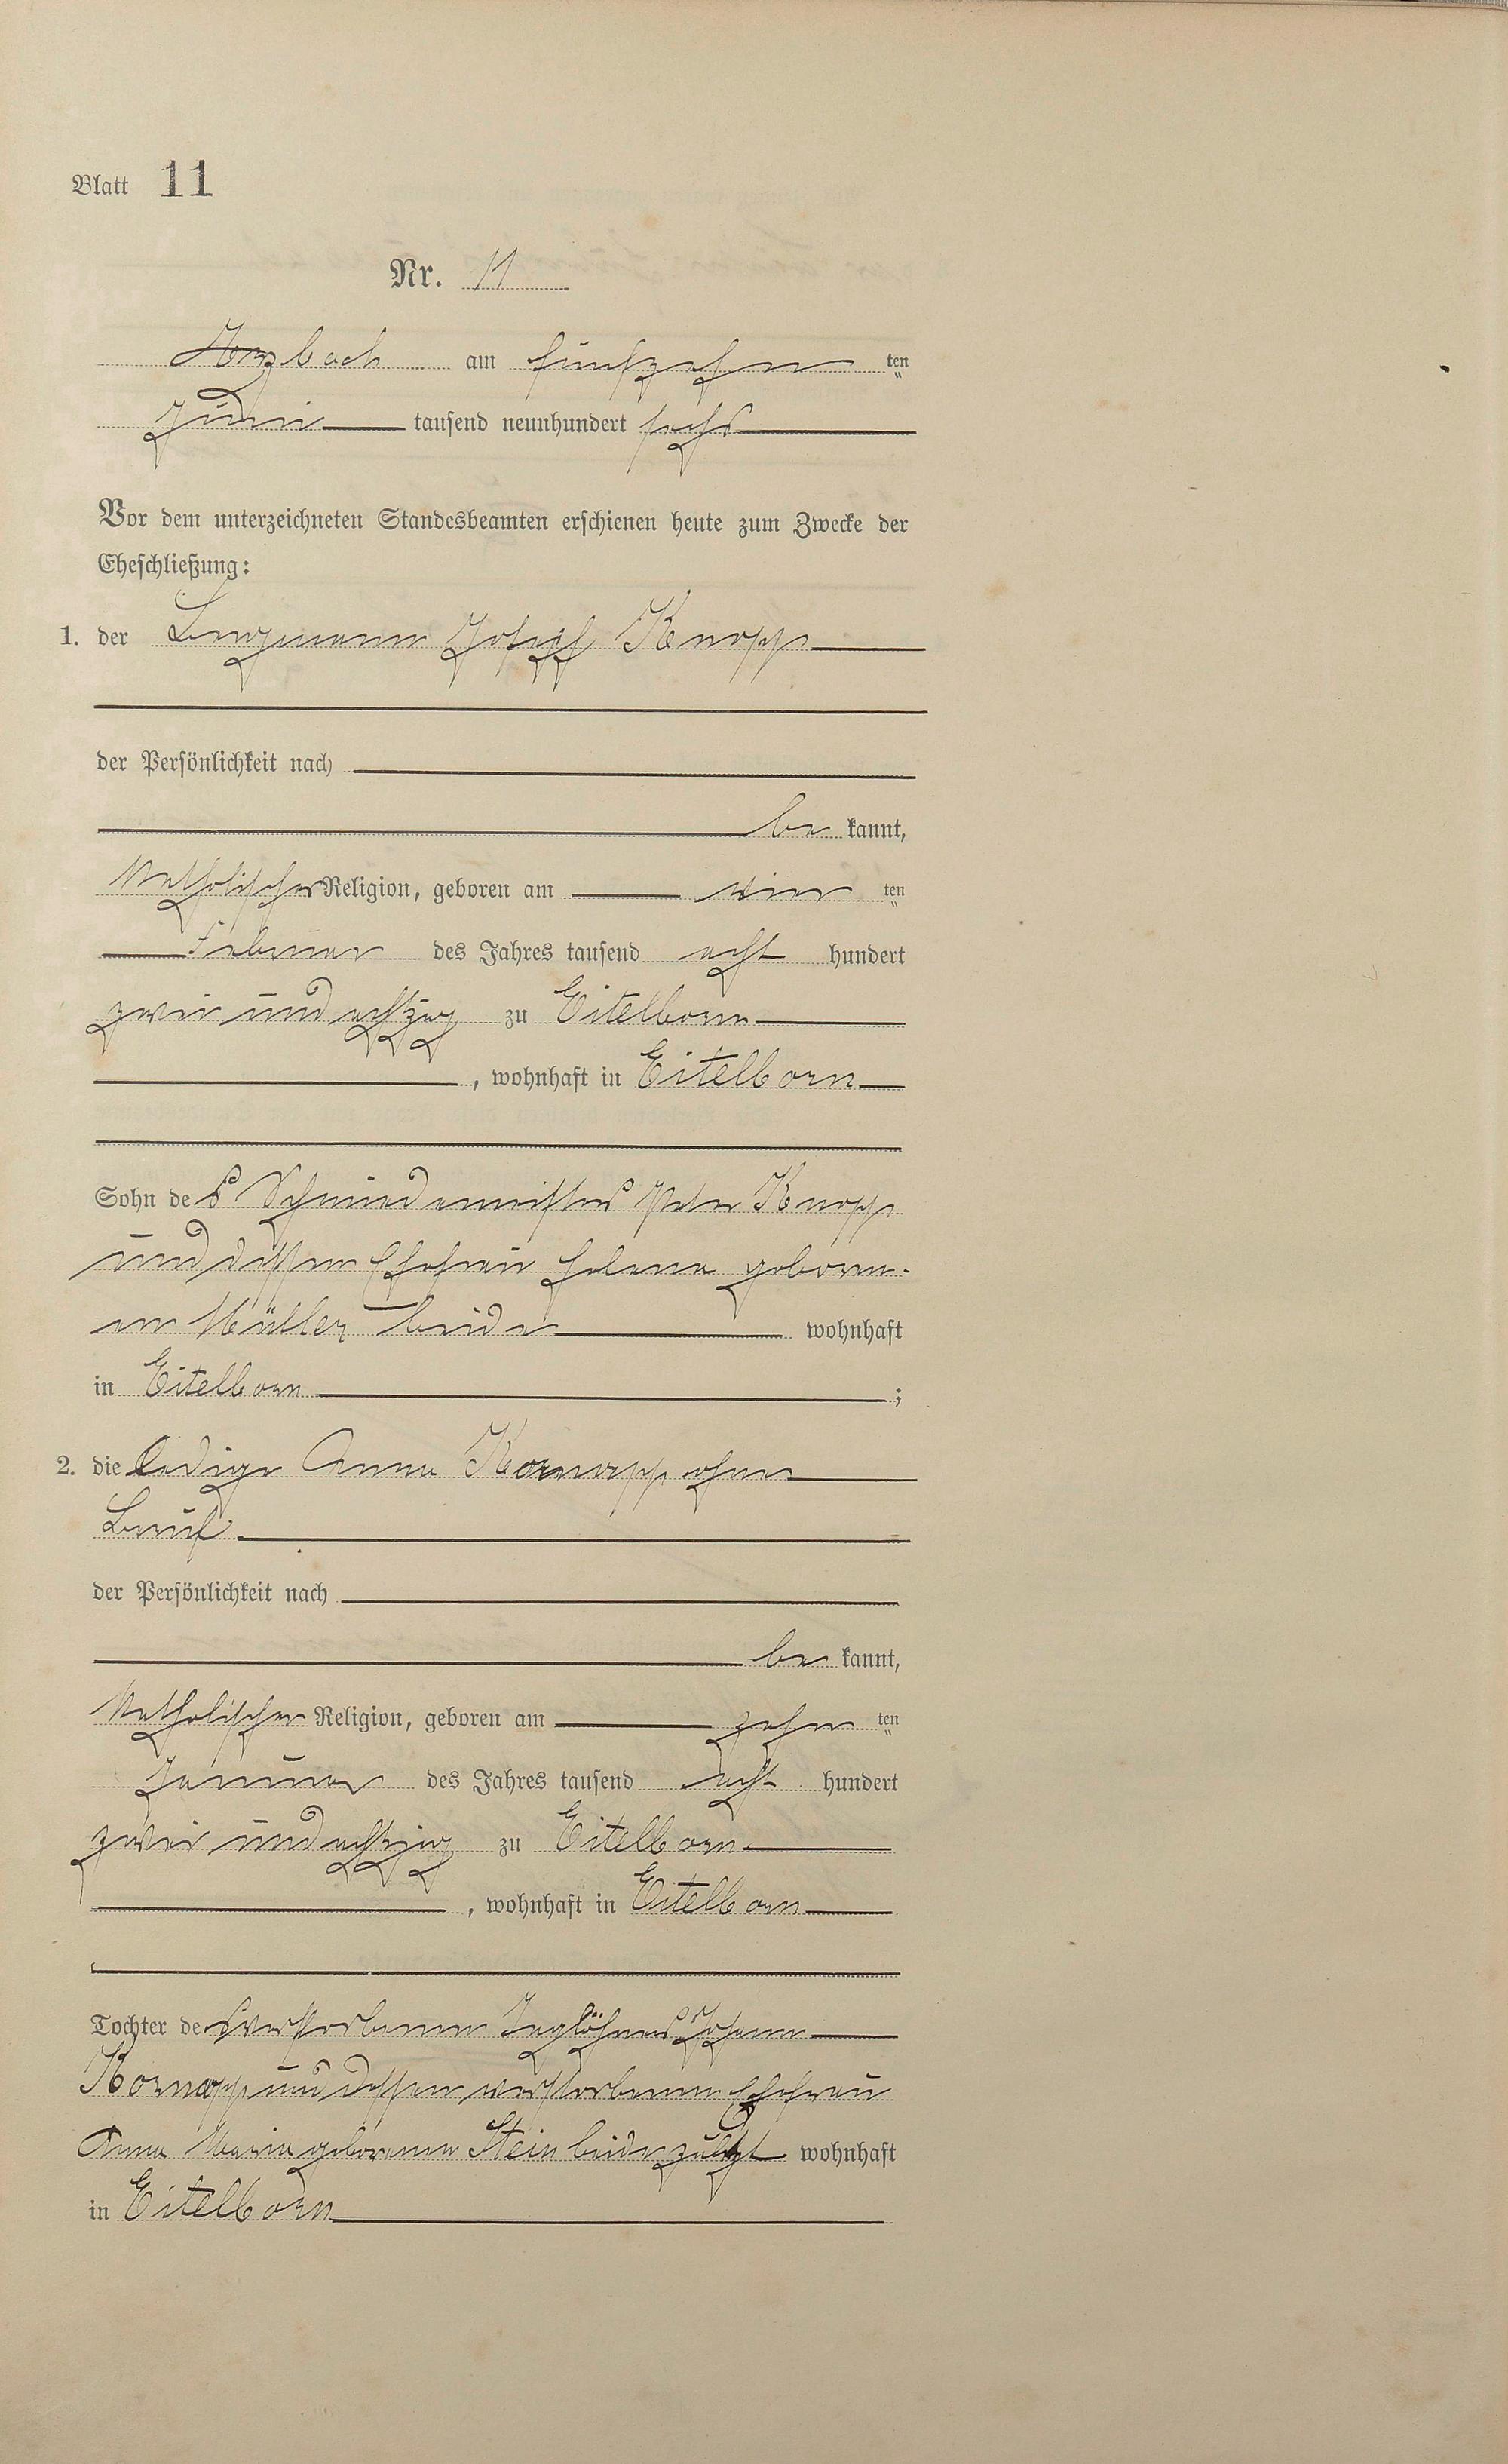 Blatt 11
Nr. 11
Arzbach am fünfzehn ten
Juni tausend neunhundert sechs
Vor dem unterzeichneten Standesbeamten erschienen heute zum Zwecke der
Eheschließung:
1. der Bergmann Josef Knopp
der Persönlichkeit nach
be kannt,
katholischer Religion, geboren am vier ten
Februar des Jahres tausend acht hundert
zwei und achtzig zu Eitelborn
, wohnhaft in Eitelborn
Sohn des Schmiedemeisters Peter Knopp
und dessen Ehefrau Helena geboren-
en Müller beide wohnhaft
in Eitelborn ;
2. die ledige Anna Kornapp ohne
Beruf
der Persönlichkeit nach
be kannt,
katholischer Religion, geboren am zehn ten
Januar des Jahres tausend acht hundert
zwei und achtzig zu Eitelborn
, wohnhaft in Eitelborn
Tochter des verstorbenen Taglöhners Johann
Kornapp und dessen verstorbenen Ehefrau
Anna Maria geborenen Stein beide zuletzt wohnhaft
in Eitelborn